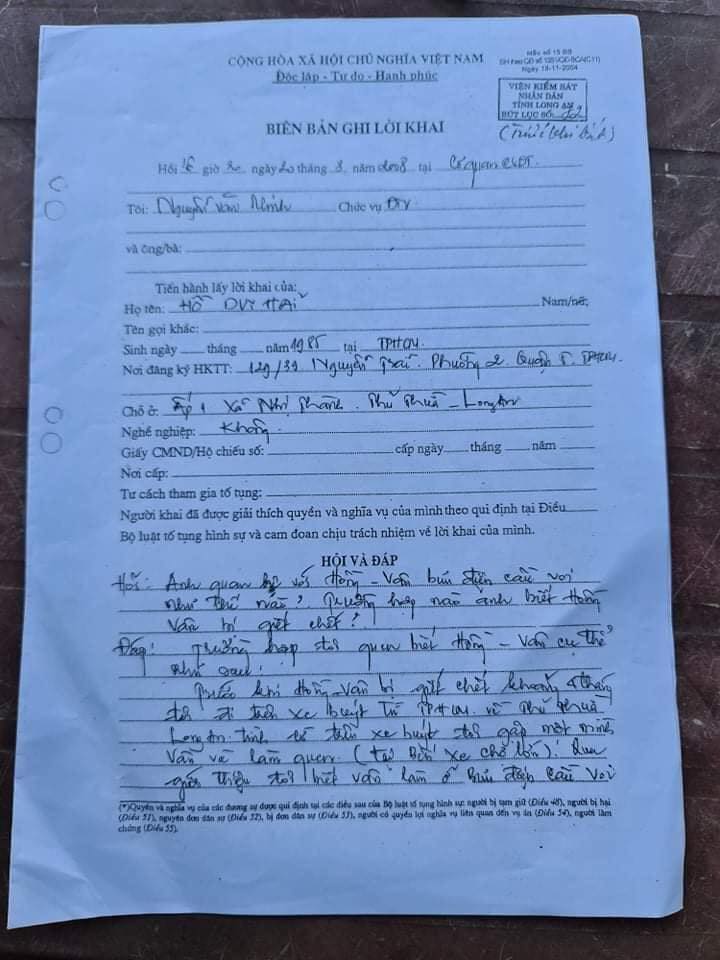 CỘNG HÒA XÃ HỘI CHỦ NGHĨA VIỆT NAM
Độc lập - Tự do - Hạnh phúc
Mẫu số 15 BB
Ngày 18-11-2004
VIỆN KIỂM SÁT
NHÂN DÂN
TỈNH LONG AN
BÚT LỤC SỐ:
BIÊN BẢN GHI LỜI KHAI
Hồi giờ 30 ngày 20 tháng 3 năm 2008 tại Cơ quan CSĐT.
Tôi: Nguyễn Văn Minh Chức vụ ĐTV
và ông/bà:
Tiến hành lấy lời khai của:
Họ tên: HỒ DUY HẢI Nam/nữ;
Tên gọi khác:
Sinh ngày tháng năm 1985 tại TPHCM.
Nơi đăng ký HKTT: 129/39 Nguyễn Trãi. Phường 2. Quận 5. TPHCM.
Chỗ ở: Ấp 1 Xã Nhị Thành. Thủ Thừa - Long An
Nghề nghiệp: Không.
Giấy CMND/Hộ chiếu số: cấp ngày tháng năm
Nơi cấp:
Tư cách tham gia tố tụng:
Người khai đã được giải thích quyền và nghĩa vụ của mình theo qui định tại Điều
Bộ luật tố tụng hình sự và cam đoan chịu trách nhiệm về lời khai của mình.
HỎI VÀ ĐÁP
Hỏi: Anh quan hệ với Hồng - Vân bưu điện cầu voi
như thế nào? Trường hợp nào anh biết Hồng
Vân bị giết chết?
Đáp: Trường hợp tôi quen biết Hồng - Vân cụ thể
như sau:
Trước khi Hồng - Vân bị giết chết khoảng tháng
tôi đi trên xe buýt từ TPHCM về Thủ Thừa
Long An. trên xe buýt tôi gặp một mình
Vân và làm quen. (tại Bến xe chợ lớn). Qua
giới thiệu tôi biết Vân làm ở Bưu điện Cầu Voi
(*)Quyền và nghĩa vụ của các đương sự được qui định tại các điều sau của Bộ luật tố tụng hình sự: người bị tạm giữ (Điều 48), người bị hại
(Điều 51), nguyên đơn dân sự (Điều 52), bị đơn dân sự (Điều 53), người có quyền lợi nghĩa vụ liên quan đến vụ án (Điều 54), người làm
chứng (Điều 55).